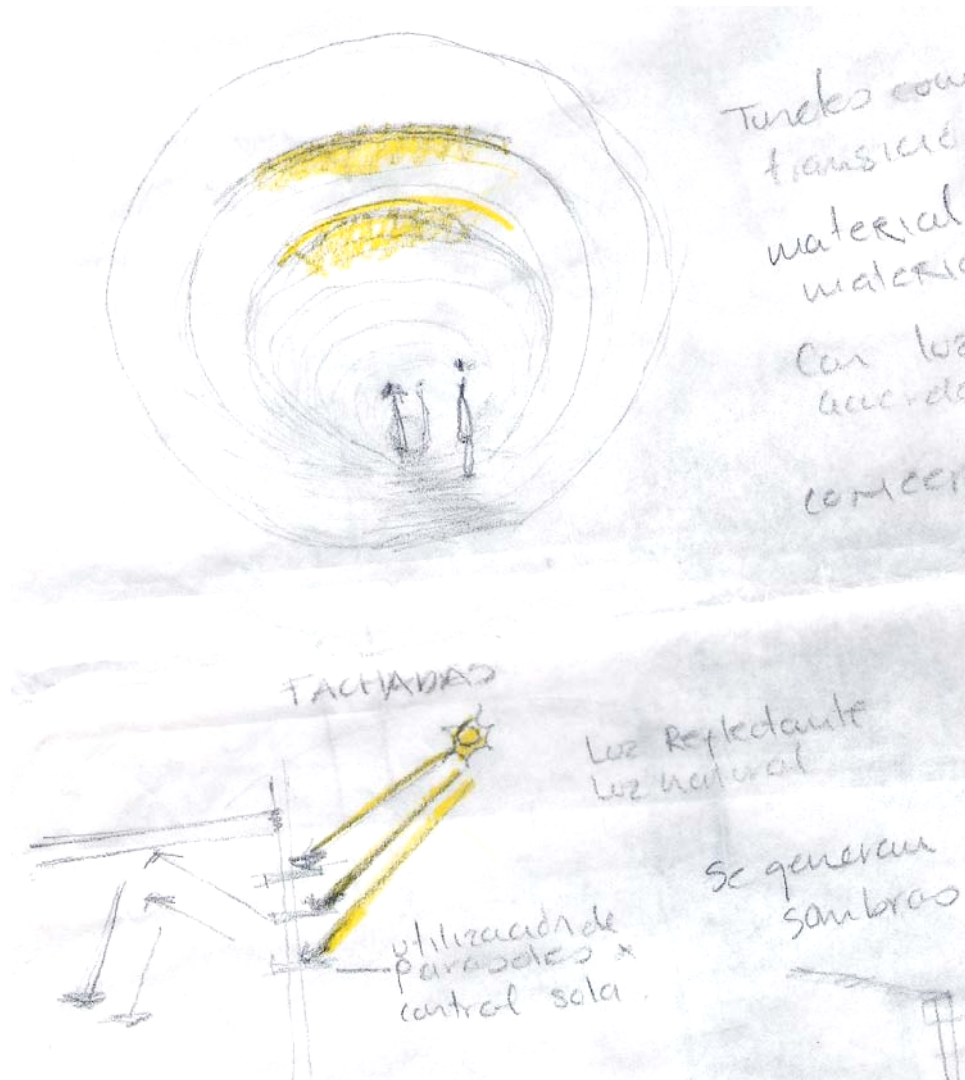 Tuneles com
transició
material
materia
Con luz
acuerdo
concen
FACHADAS
Luz Reflectante
Luz natural
Se generan
sombras
utilización de
parasoles x
control sola.